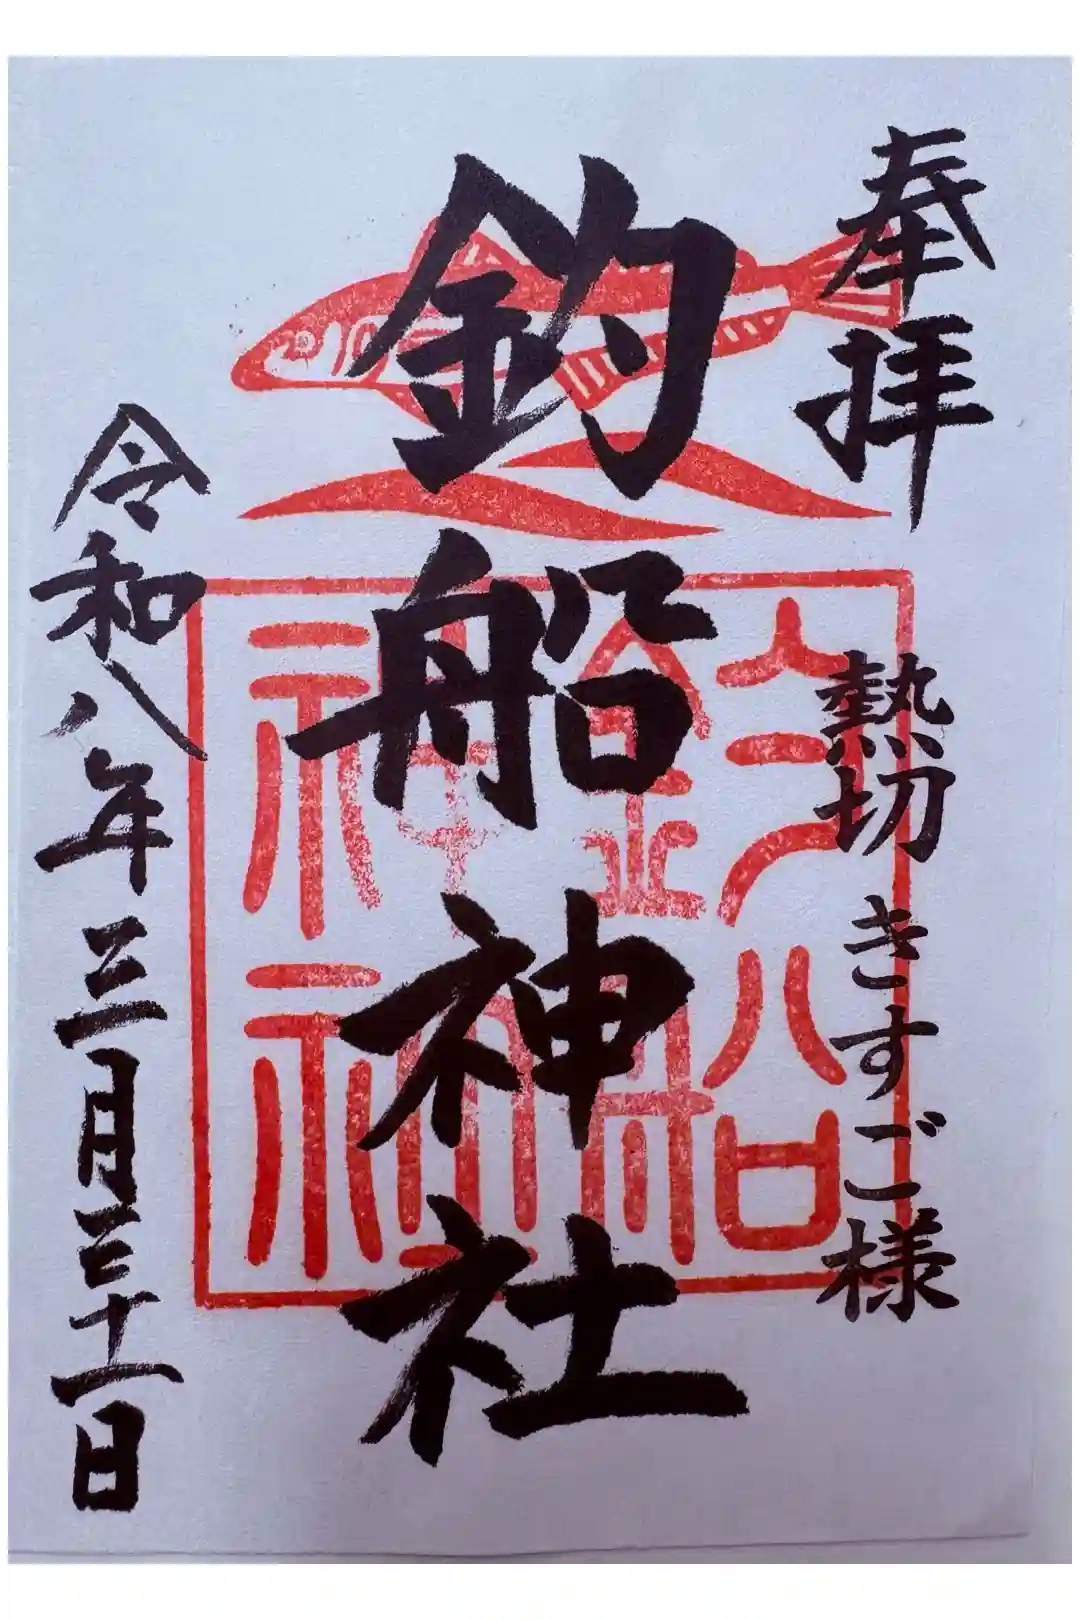 奉拝
熱切きすご様
釣船神社
令和八年三月三十一日